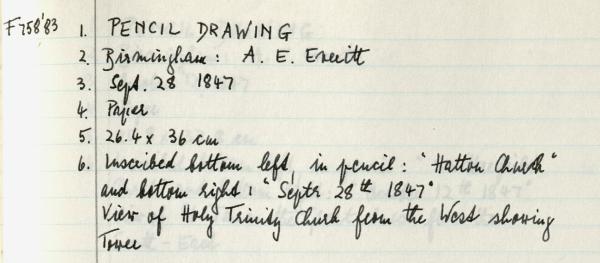 F758'83 1. PENCIL DRAWING
2. Birmingham: A. E. Everitt
3. Sept. 28 1847
4. Paper
5. 26.4 x 36 cm
6. Inscribed bottom left, in pencil: "Hatton Church"
and bottom right: "Septr 28th 1847"
View of Holy Trinity Church from the West showing
Tower